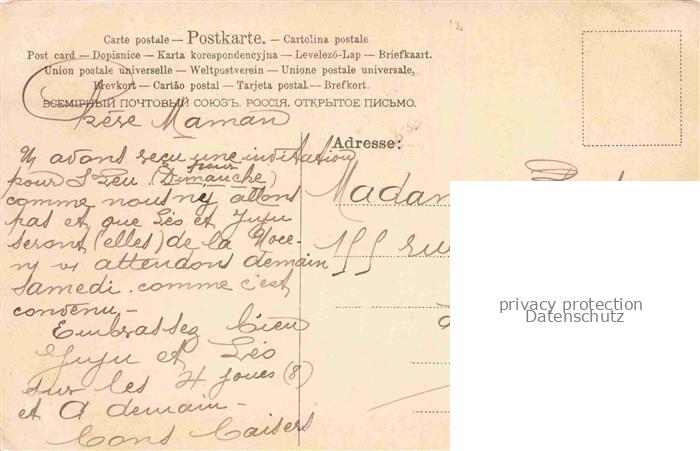 Carte postale — Postkarte. — Cartolina postale
Post card — Dopisnice — Karta korespondencyjna — Levelező-Lap — Briefkaart.
Union postale universelle — Weltpostverein — Unione postale universale,
Brevkort — Cartão postal — Tarjeta postal. — Brefkort.
ВСЕМІРНЫЙ ПОЧТОВЫЙ СОЮЗЪ. РОССІЯ. ОТКРЫТОЕ ПИСЬМО.
Chère Maman
Adresse:
N avons reçu une invitation
pour
pour S Leu (Dimanche)
comme nous n'y allons
pas et que Léo et Juju
seront (elles) de la Noce
n vs attendons demain
samedi comme c'est
convenu -
Embrassez bien
Juju et Léo
sur les 4 joues (8)
et A demain -
Bons Baisers
Madam
155 ru
privacy protection
Datenschutz